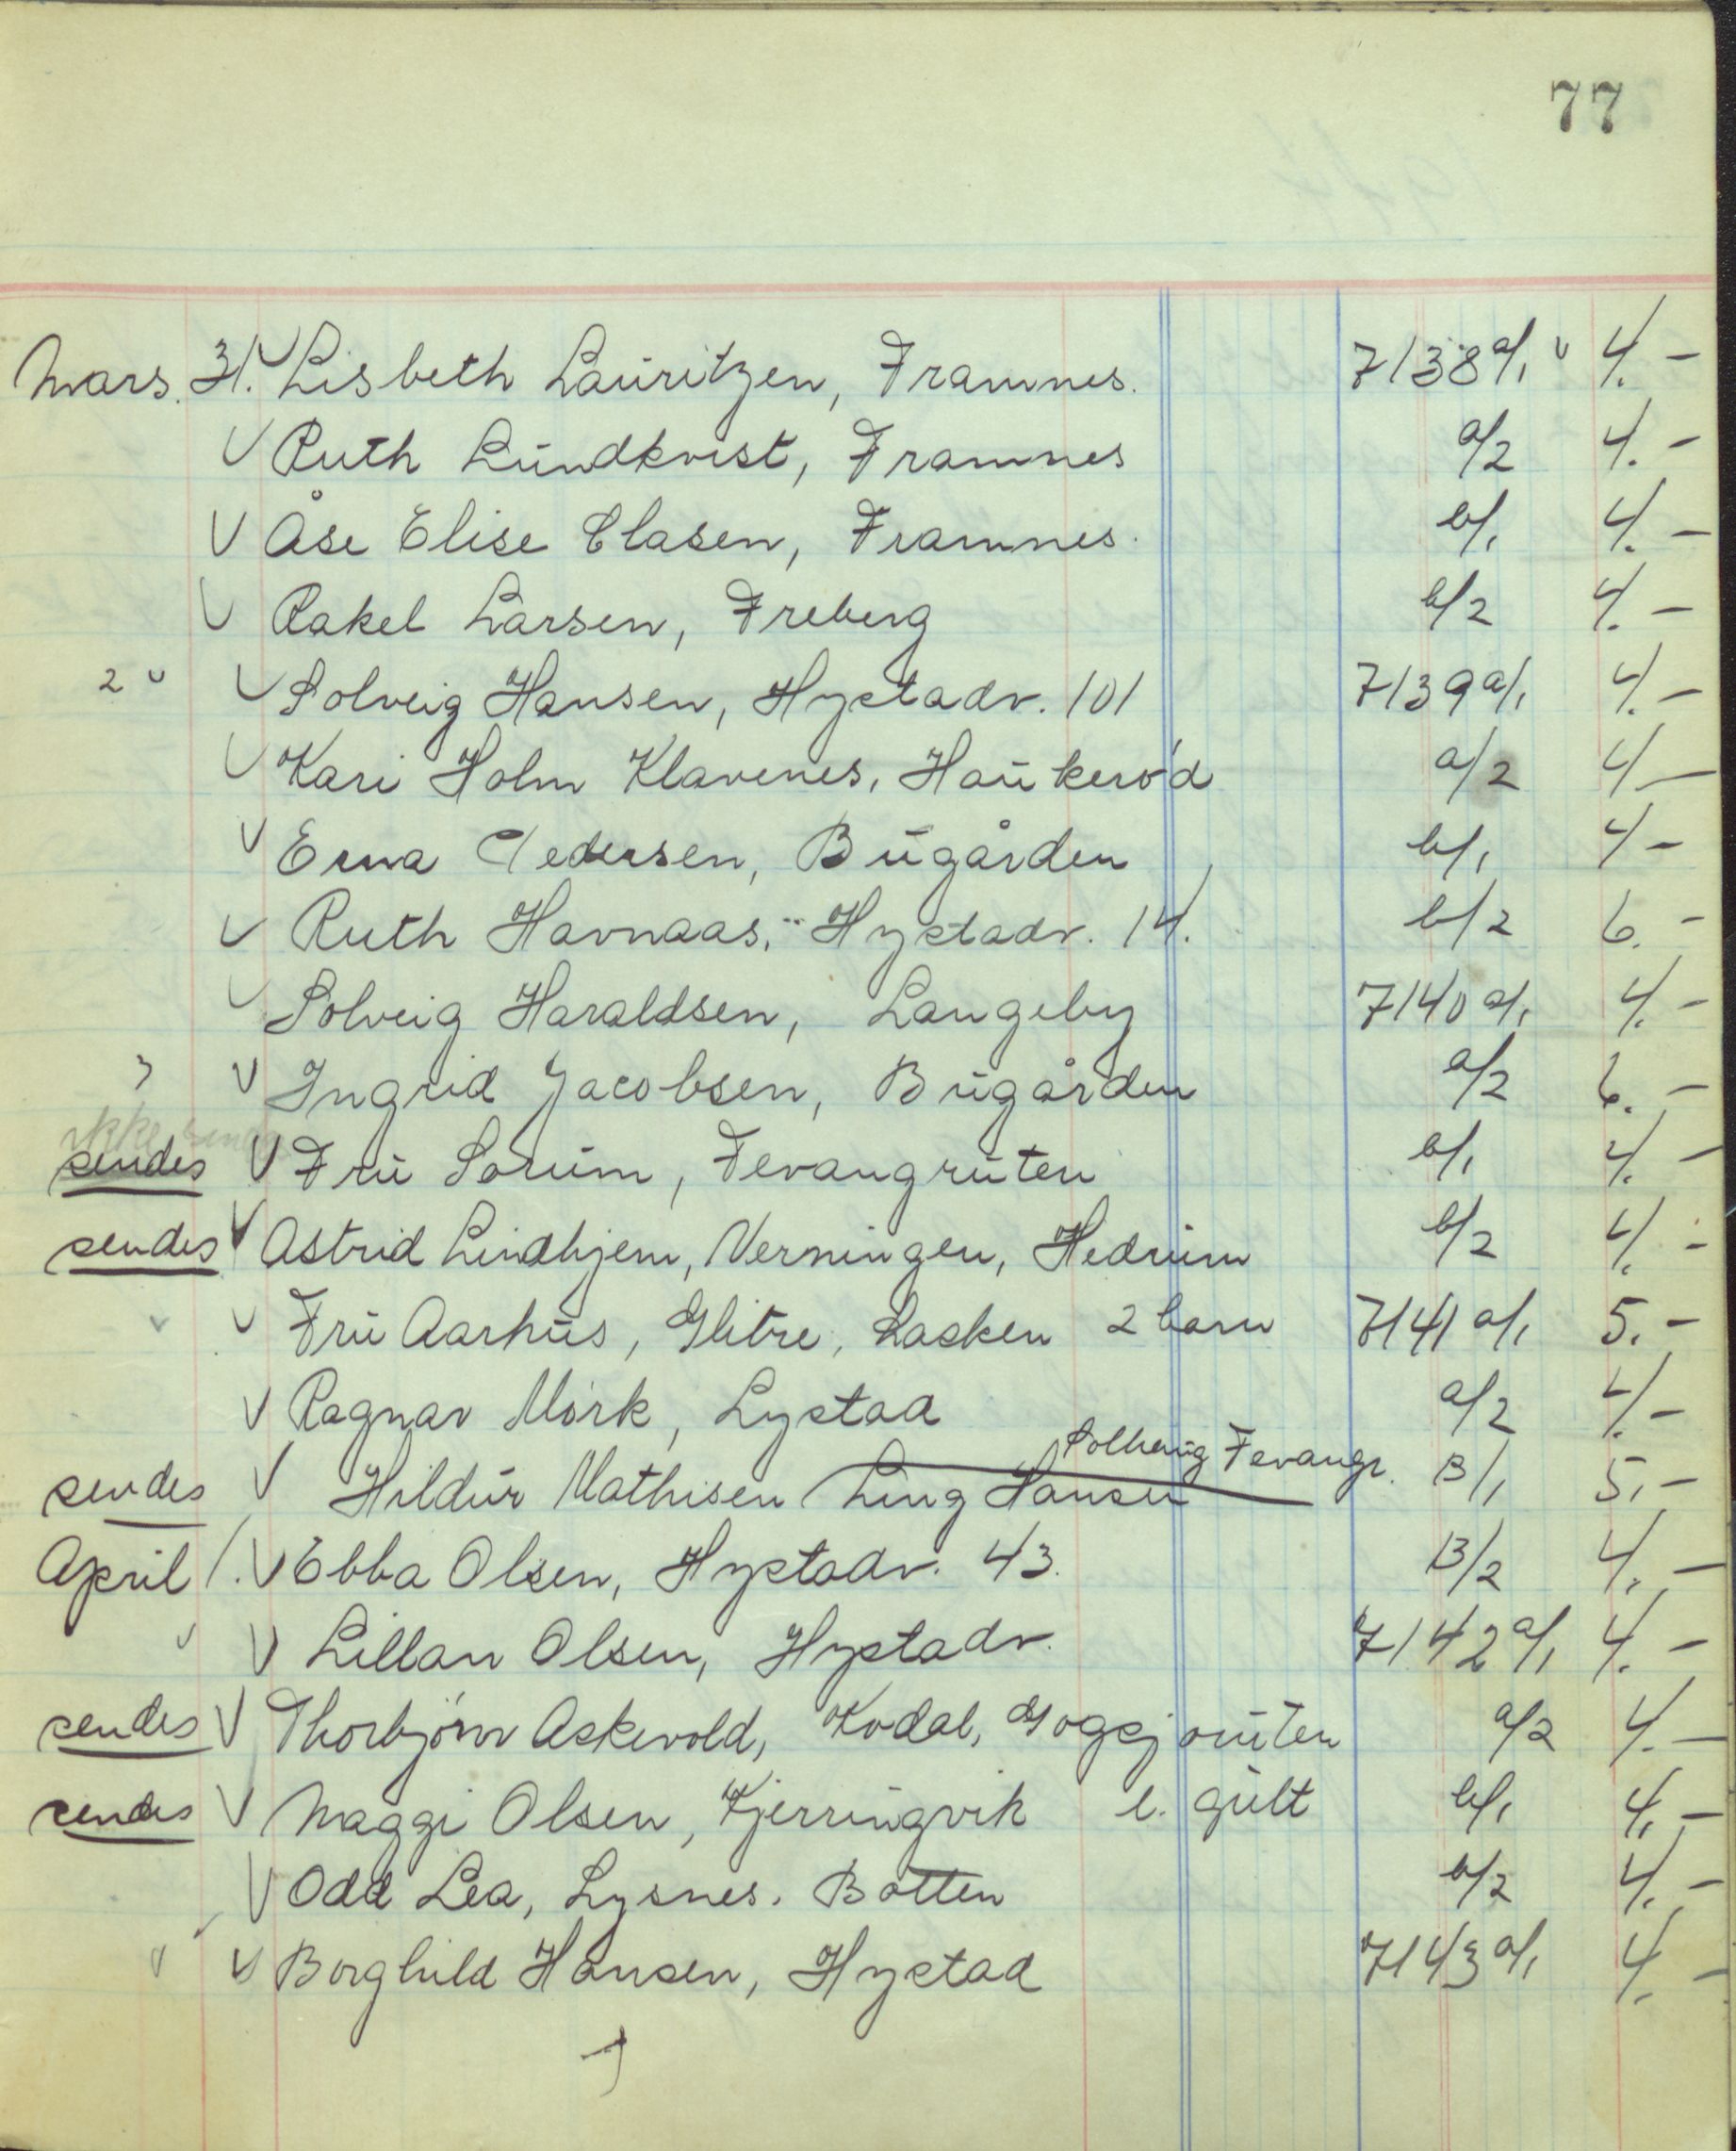 77
Mars. 31. V Lisbeth Lauritzen, Framnes. 7138 a/1 v 4.-
V Ruth Lundkvist, Framnes a/2 4.-
V Åse Elise Clasen, Framnes. b/1 4.-
V Rakel Larsen, Freberg b/2 4.-
2 v V Solveig Hansen, Hystadv. 101 7139 a/1 4.-
V Kari Holm Klavenes, Haukerød a/2 4-
V Erna Pedersen, Bugården b/1 4-
V Ruth Havnaas, Hystadv. 14. b/2 6.-
V Solveig Haraldsen, Langeby 7140 a/1 4.-
3 V Ingrid Jacobsen, Bugården a/2 6.-
ikke
sendes V Fru Sorum, Fevangruten b/1 4.-
sendes V Astrid Lindhjem, Verningen, Hedrum b/2 4.-
v V Fru Aarhus, Glitre, Lasken 2 barn 7141 a/1 5.-
V Ragnar Mörk, Lystad a/2 4.-
Solberg Fevangr.
sendes V Hildur Mathisen Ling Hansen B/1 5.-
April 1. V Ebba Olsen, Hystadv. 43. B/2 4.-
v V Lillan Olsen, Hystadv. 7142 a/1 4.-
sendes V Thorbjörn Askevold, Kodal, Gogsjøruten a/2 4.-
sendes V Maggi Olsen, Kjerringvik l. gult b/1 4.-
V Odd Lea, Lysnes. Botten b/2 4.-
v V Borghild Hansen, Hystad 7143 a/1 4.-